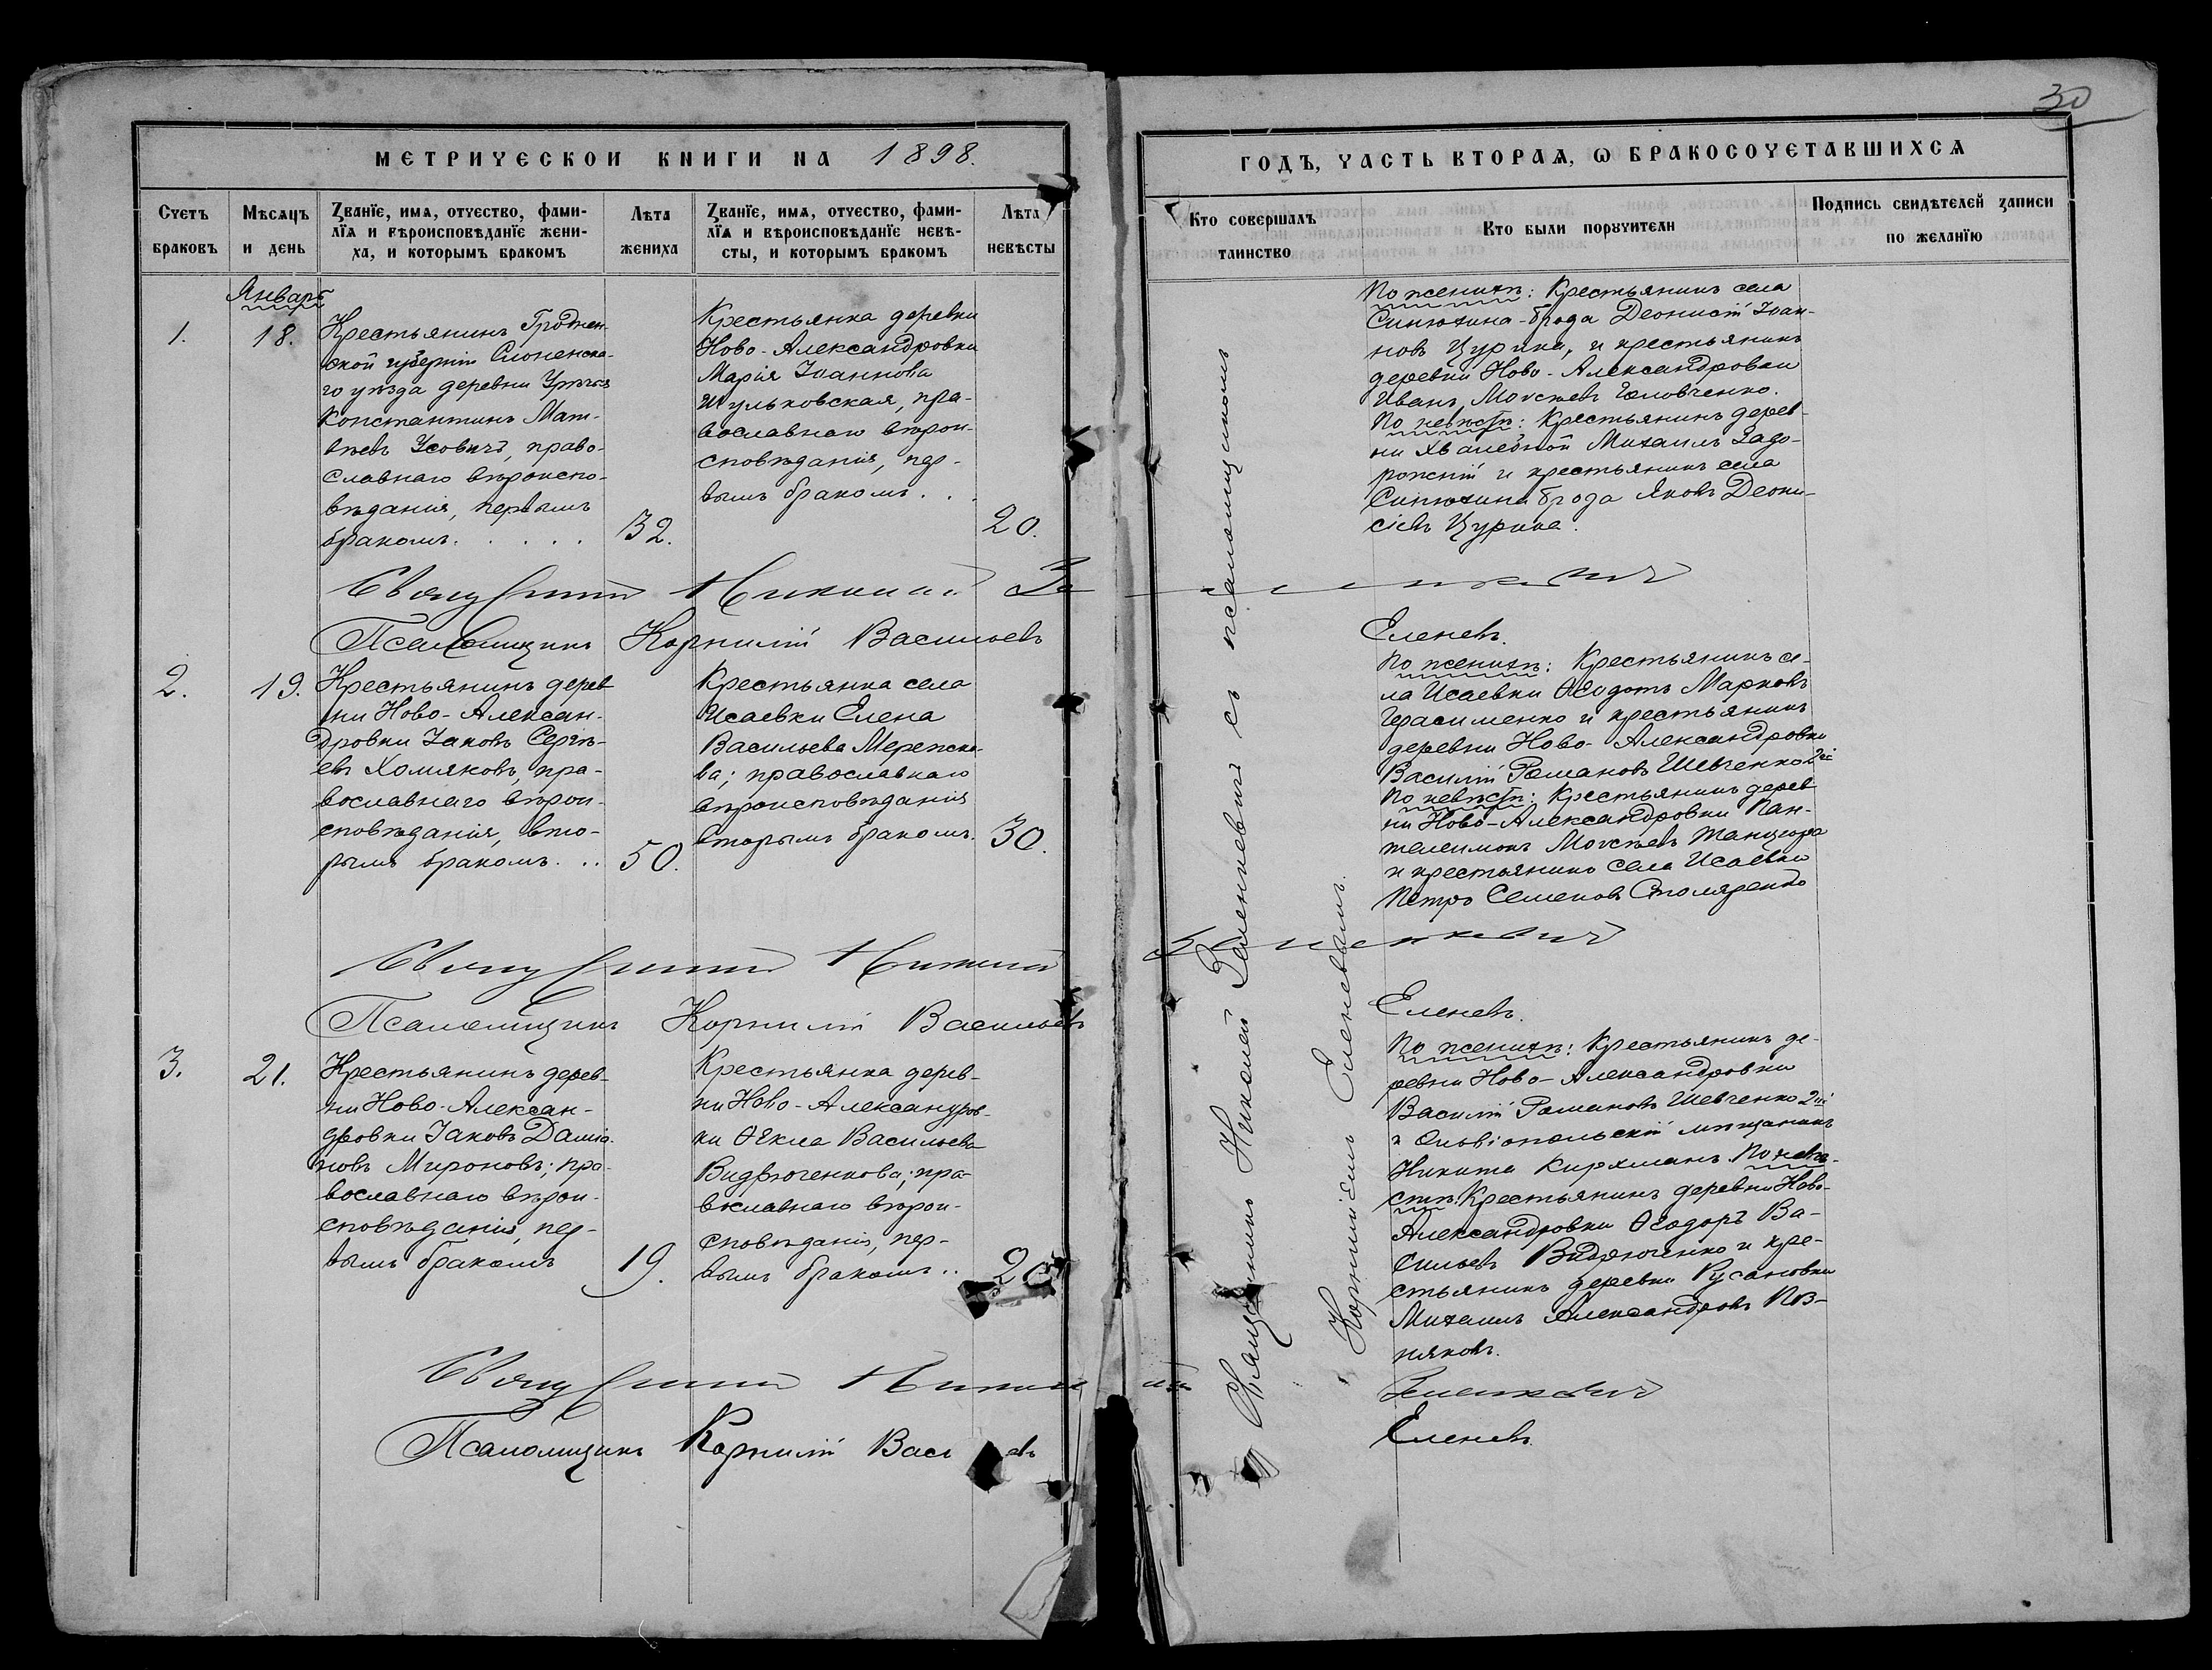 30
МЕТРИЧЕСКОИ КНИГИ НА 1898.
Счетъ браковъ
Мѣсяцъ и день
Званїе, имя, отчество, фами-
лїя и вѣроисповѣданїе жени-
ха, и которымъ бракомъ
Лѣта жениха
Званїе, имя, отчество, фами-
лїя и вѣроисповѣданїе невѣ-
сты, и которымъ бракомъ
Лѣта невѣсты
ГОДЪ, ЧАСТЬ ВТОРАЯ, Ѡ БРАКОСОЧЕТАВШИХСЯ
Кто совершалъ таинство
Кто были поручители
Подпись свидѣтелей записи
по желанїю
Январь
1.
18.
Крестьянинъ Гроднен-
ской губерніи Слонемска-
го уѣзда деревни
Константинъ Мат-
вѣевъ Усовичъ, право-
славнаго вѣроиспо-
вѣданія, первымъ
бракомъ. . . . .
32.
Крестьянка деревни
Ново-Александровки
Марія Іоаннова
Шульковская, пра-
вославнаго вѣрои-
сповѣданія, пер-
вымъ бракомъ. . .
20.
По женихѣ: Крестьянинъ села
Синюхина-брода Деонисій Іоан-
новъ Цурика, и крестьянинъ
деревни Ново-Александровки
Иванъ Моѵсѣевъ Головченко.
По невѣстѣ: Крестьянинъ дерев-
ни Хвалебной Михаилъ Задо-
рожній и крестьянинъ села
Синюхина брода Яковъ Деони-
сіевъ Цурика.
Священникъ Николай Зеленкевичъ
Псаломщикъ Корнилій Васильевъ Еленевъ.
2.
19.
Крестьянинъ дерев-
ни Ново-Алексан-
дровки Іаковъ Сергѣ-
евъ Хомяковъ, пра-
вославнаго вѣрои-
сповѣданія, вто-
рымъ бракомъ. . .
50.
Крестьянка села
Исаевки Елена
Васильева Мережко-
ва; православнаго
вѣроисповѣданія
вторымъ бракомъ.
30.
По женихѣ: Крестьянинъ се-
ла Исаевки Ѳеодотъ Марковъ
Герасименко и крестьянинъ
деревни Ново-Александровки
Василій Романовъ Шевченко 2й
По невѣстѣ: Крестьянинъ дерев
ни Ново-Александровки Пан-
телеимонъ Моѵсѣевъ Танцюра
и крестьянинъ села Исаевки
Петръ Семеновъ Столяренко
Священникъ Николай Зеленкевичъ
Псаломщикъ Корнилій Васильевъ Еленевъ.
3.
21.
Крестьянинъ дерев-
ни Ново-Алексан-
дровки Іаковъ Даміа-
новъ Мироновъ; пра-
вославнаго вѣрои-
сповѣданія, пер-
вымъ бракомъ
19.
Крестьянка дерев-
ни Ново-Александров-
ки Ѳекла Васильева
Видрюченкова; пра-
вославнаго вѣрои-
сповѣданія, пер-
вымъ бракомъ. .
20
По женихѣ: Крестьянинъ де-
ревни Ново-Александровки
Василій Романовъ Шевченко 2й
и Ольвіопольскій мѣщанинъ
Никита Кирхманъ. По невѣ-
стѣ: Крестьянинъ деревни Ново-
Александровки Ѳеодоръ Ва-
сильевъ Видрюченко и кре-
стьянинъ деревни Русановки
Михаилъ Александровъ Поз-
няковъ.
Священникъ Николай Зеленкевичъ
Псаломщикъ Корнилій Вас евъ Еленевъ.
Священникъ Николай Зеленкевичъ съ псаломщикомъ
Корниліемъ Еленевымъ.